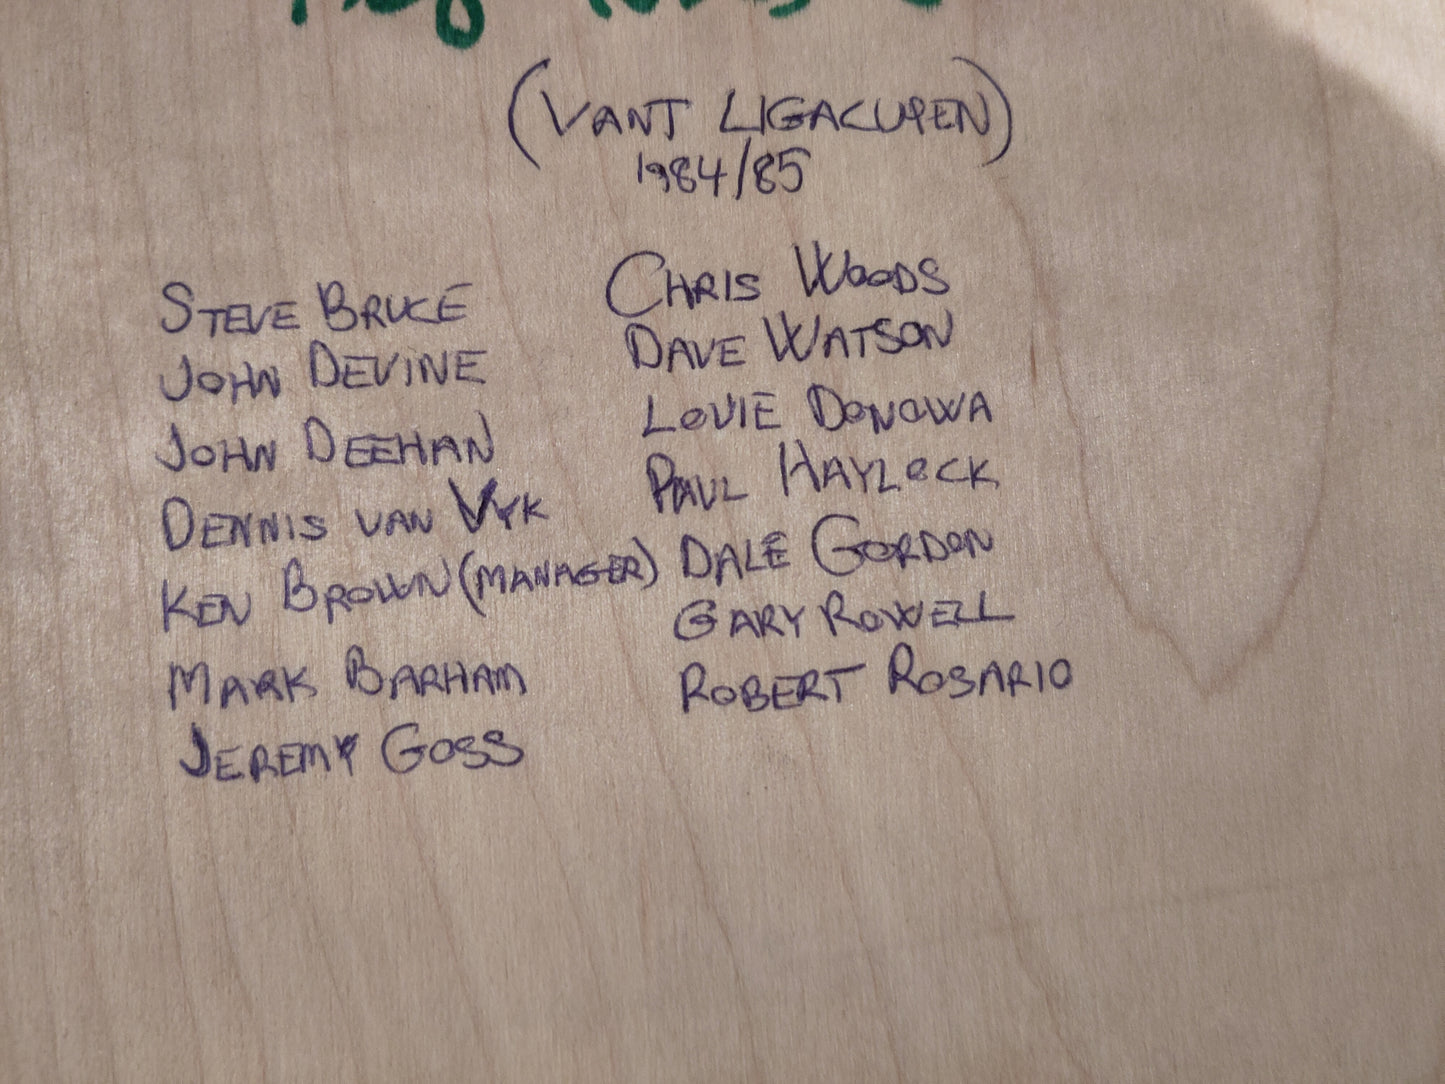 (VANT LIGACUPEN)
1984/85
STEVE BRUCE
JOHN DEVINE
JOHN DEEHAN
DENNIS VAN VYK
KEN BROWN (MANAGER)
MARK BARHAM
JEREMY GOSS
CHRIS WOODS
DAVE WATSON
LOUIE DONOWA
PAUL HAYLOCK
DALE GORDON
GARY ROWELL
ROBERT ROSARIO